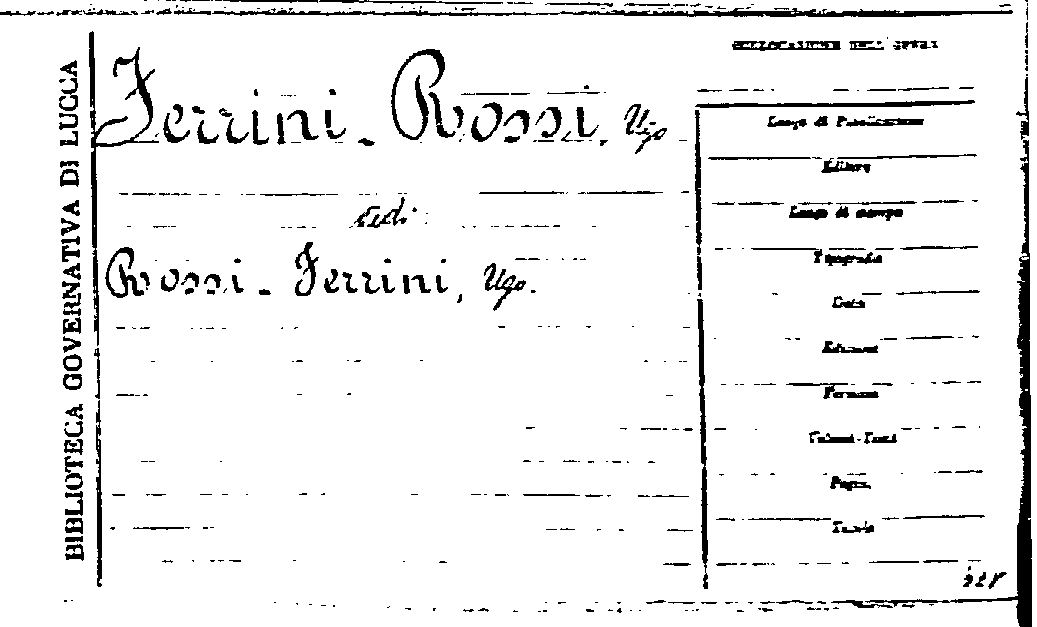 BIBLIOTECA GOVERNATIVA DI LUCCA
Ferrini - Rossi, Ugo
vedi:
Rossi - Ferrini, Ugo.
COLLOCAZIONE DELL'OPERA
Luogo di Pubblicazione
Editore
Luogo di stampa
Tipografia
Data
Edizione
Formato
Volumi-Tomi
Pagine
Tavole